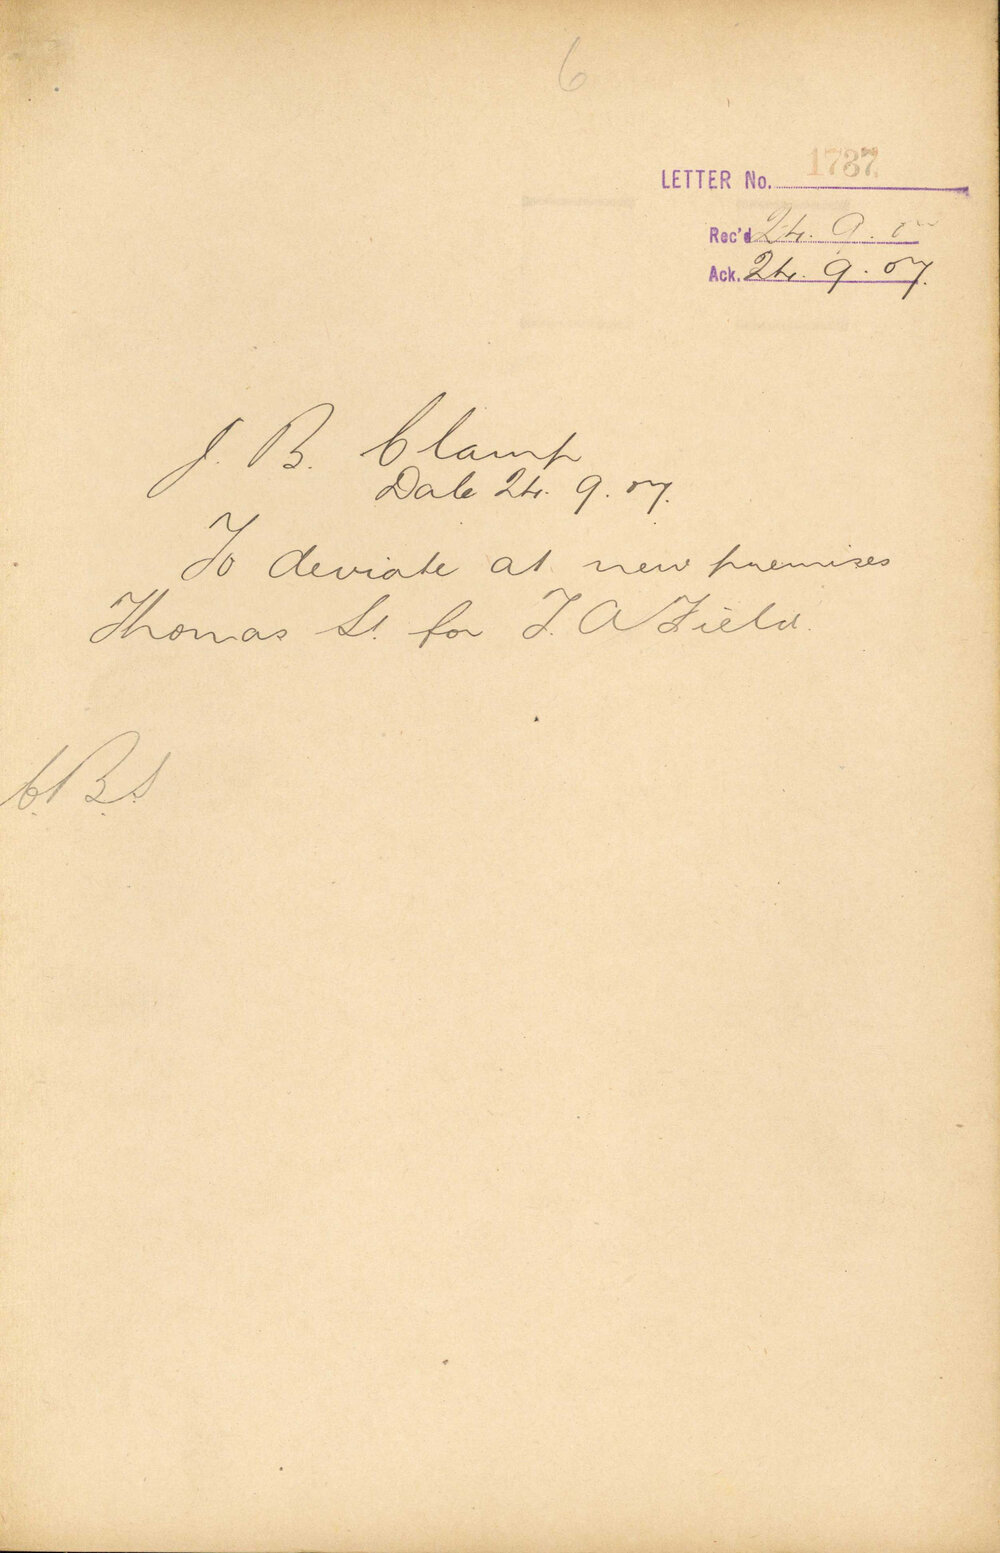 6
LETTER No. 1737
Rec'd 24. 9. 07
Ack. 24. 9. 07.
J. B. Clamp
Date 24. 9. 07.
To deviate at new premises
Thomas St. for T. A Field.
C.B.S